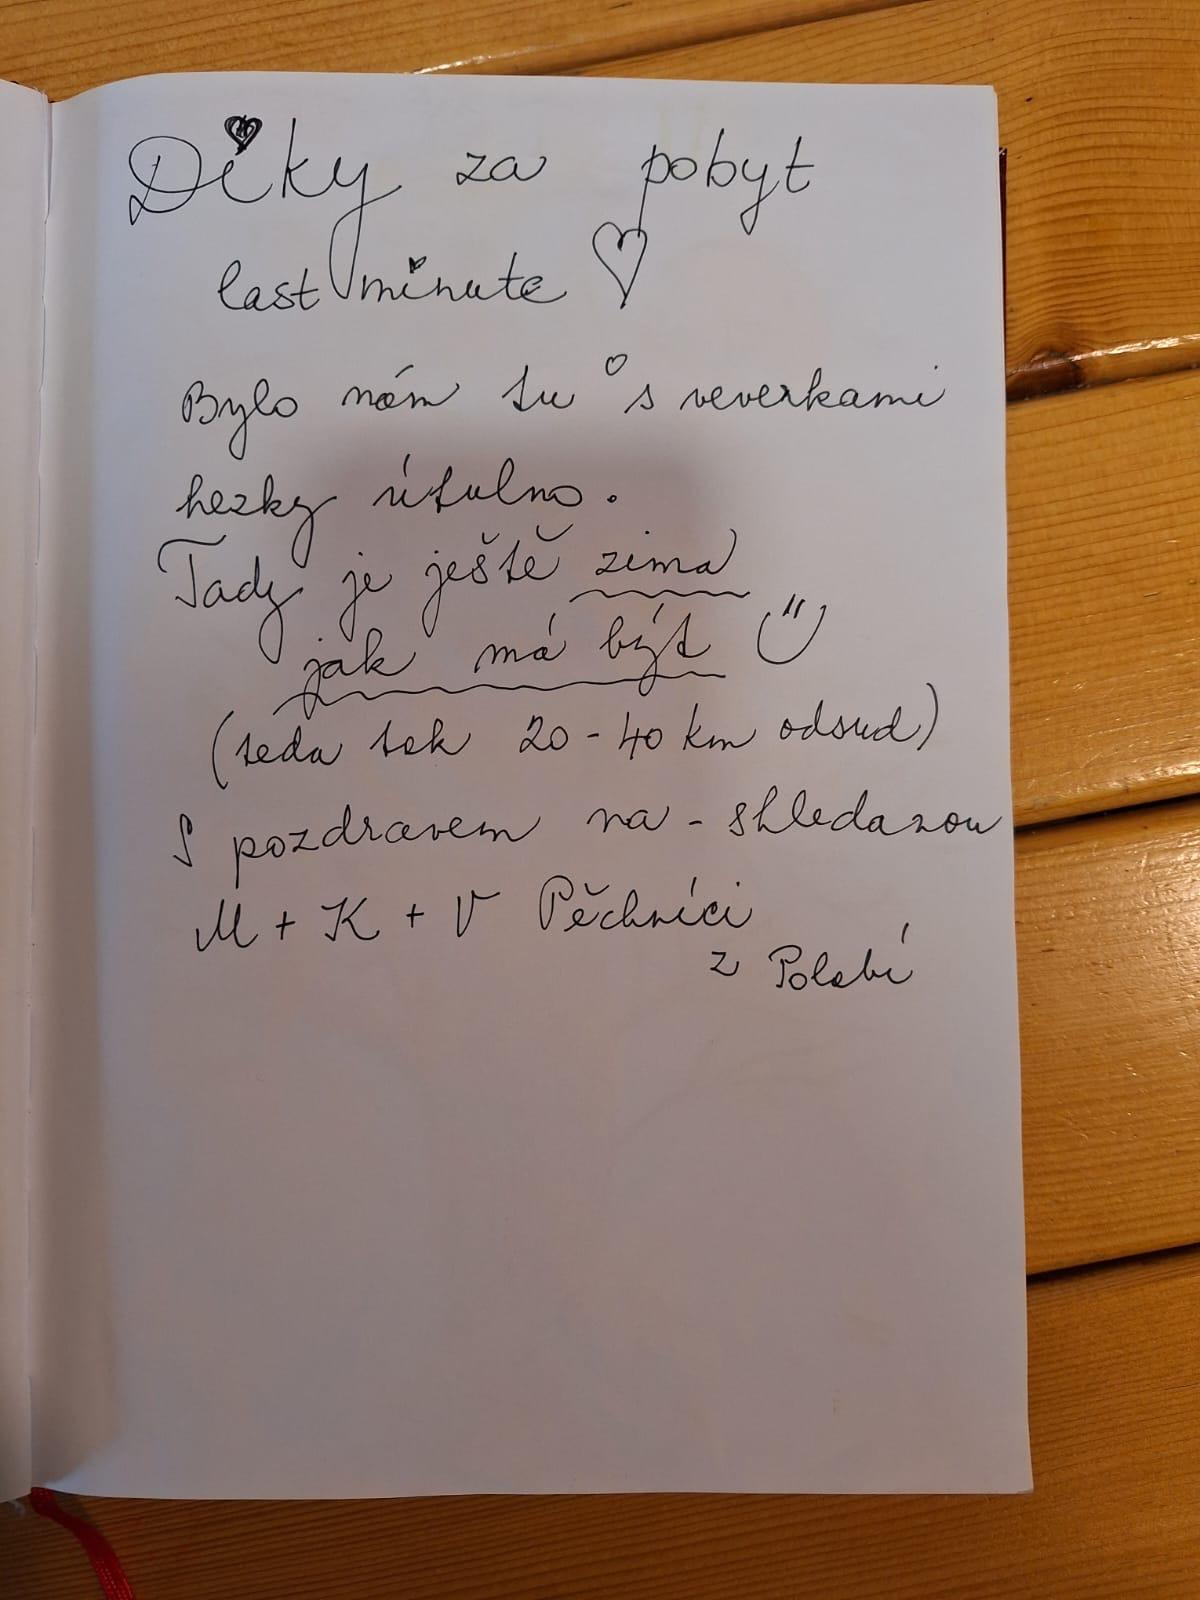 Díky za pobyt
last minute ♡
Bylo nám tu s veverkami
hezky útulno.
Tady je ještě zima
jak má být
(teda tak 20-40 km odsud)
S pozdravem na-shledanou
M + K + V Pěchníci
z Polabí